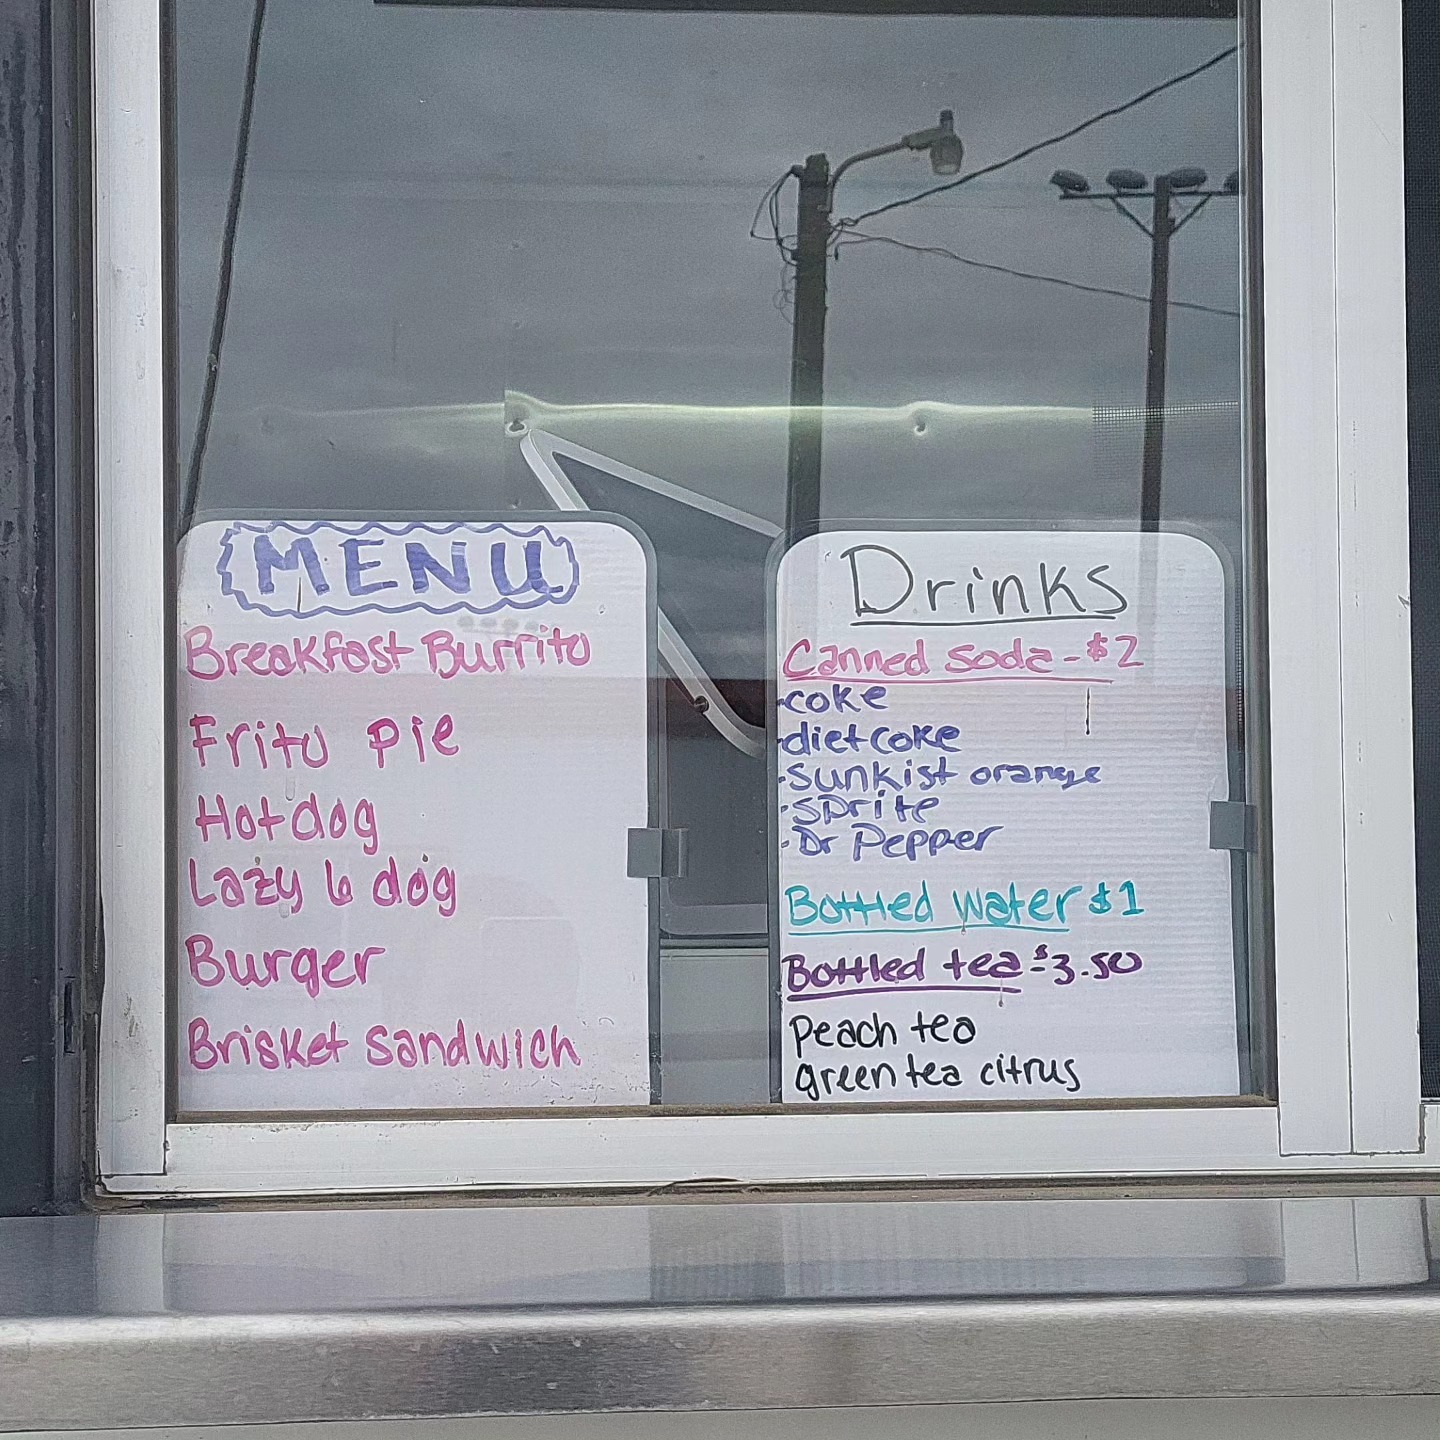 MENU
Breakfast Burrito
Frito pie
Hotdog
Lazy 6 dog
Burger
Brisket sandwich
Drinks
Canned soda - $2
-coke
-diet coke
-sunkist orange
-sprite
-Dr Pepper
Bottled water $1
Bottled tea - $3.50
peach tea
green tea citrus